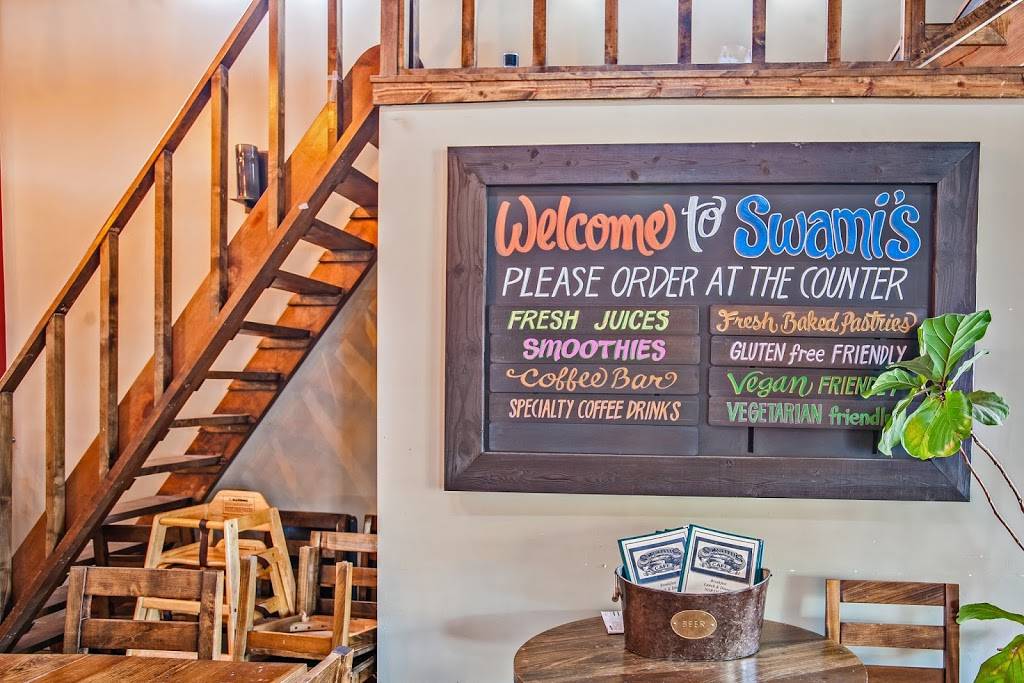 Welcome to Swami's
PLEASE ORDER AT THE COUNTER
FRESH JUICES
SMOOTHIES
Coffee Bar
SPECIALTY COFFEE DRINKS
Fresh Baked Pastries
GLUTEN free FRIENDLY
Vegan FRIENDLY
VEGETARIAN friendly
CAFE
CAFE
Breakfast
BEER